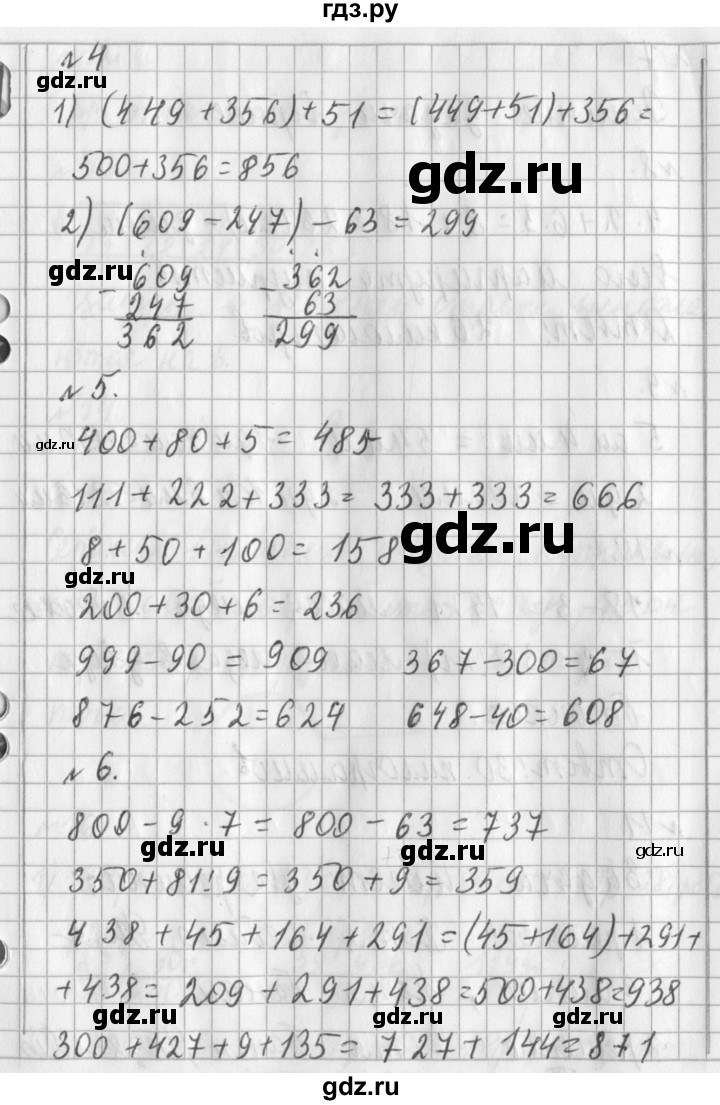 гдз.ру
№ 4
gdz.ru
1) (449 + 356) + 51 = (449 + 51) + 356 =
500 + 356 = 856
gdz.ru
2) (609 - 247) - 63 = 299
gdz.ru
- 609 - 362
247 63
362 299
№ 5.
gdz.ru
400 + 80 + 5 = 485
111 + 222 + 333 = 333 + 333 = 666
gdz.ru
8 + 50 + 100 = 158
gdz.ru
200 + 30 + 6 = 236
999 - 90 = 909 367 - 300 = 67
876 - 252 = 624 648 - 40 = 608
№ 6.
800 - 9 · 7 = 800 - 63 = 737
gdz.ru gdz.ru gdz.ru
350 + 81 : 9 = 350 + 9 = 359
438 + 45 + 164 + 291 = (45 + 164) + 291 +
+ 438 = 209 + 291 + 438 = 500 + 438 = 938
gdz.ru gdz.ru gdz.ru
300 + 427 + 9 + 135 = 727 + 144 = 871
gdz.ru